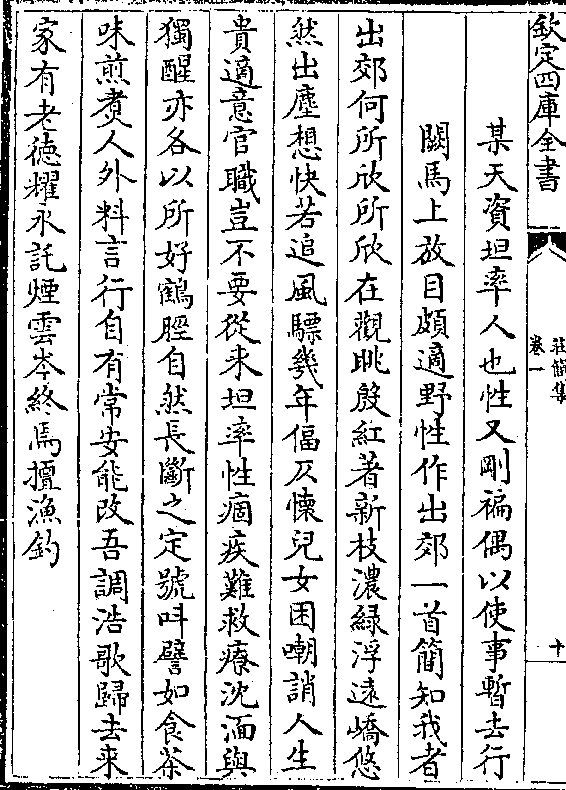 欽定四庫全書
莊簡集
卷一
十
某天資坦率人也性又剛褊偶以使事暫去行
闕馬上放目頗適野性作出郊一首簡知我者
出郊何所欣所欣在觀眺殷紅著新枝濃綠浮遠嶠悠
然出塵想快若追風驃幾年偪仄懷兒女困嘲誚人生
貴適意官職豈不要從来坦率性痼疾難救療沈湎與
獨醒亦各以所好鶴脛自然長斷之定號叫譬如食茶
味煎煑人外料言行自有常安能改吾調浩歌歸去来
家有老德耀永託煙雲岑終焉擅漁釣